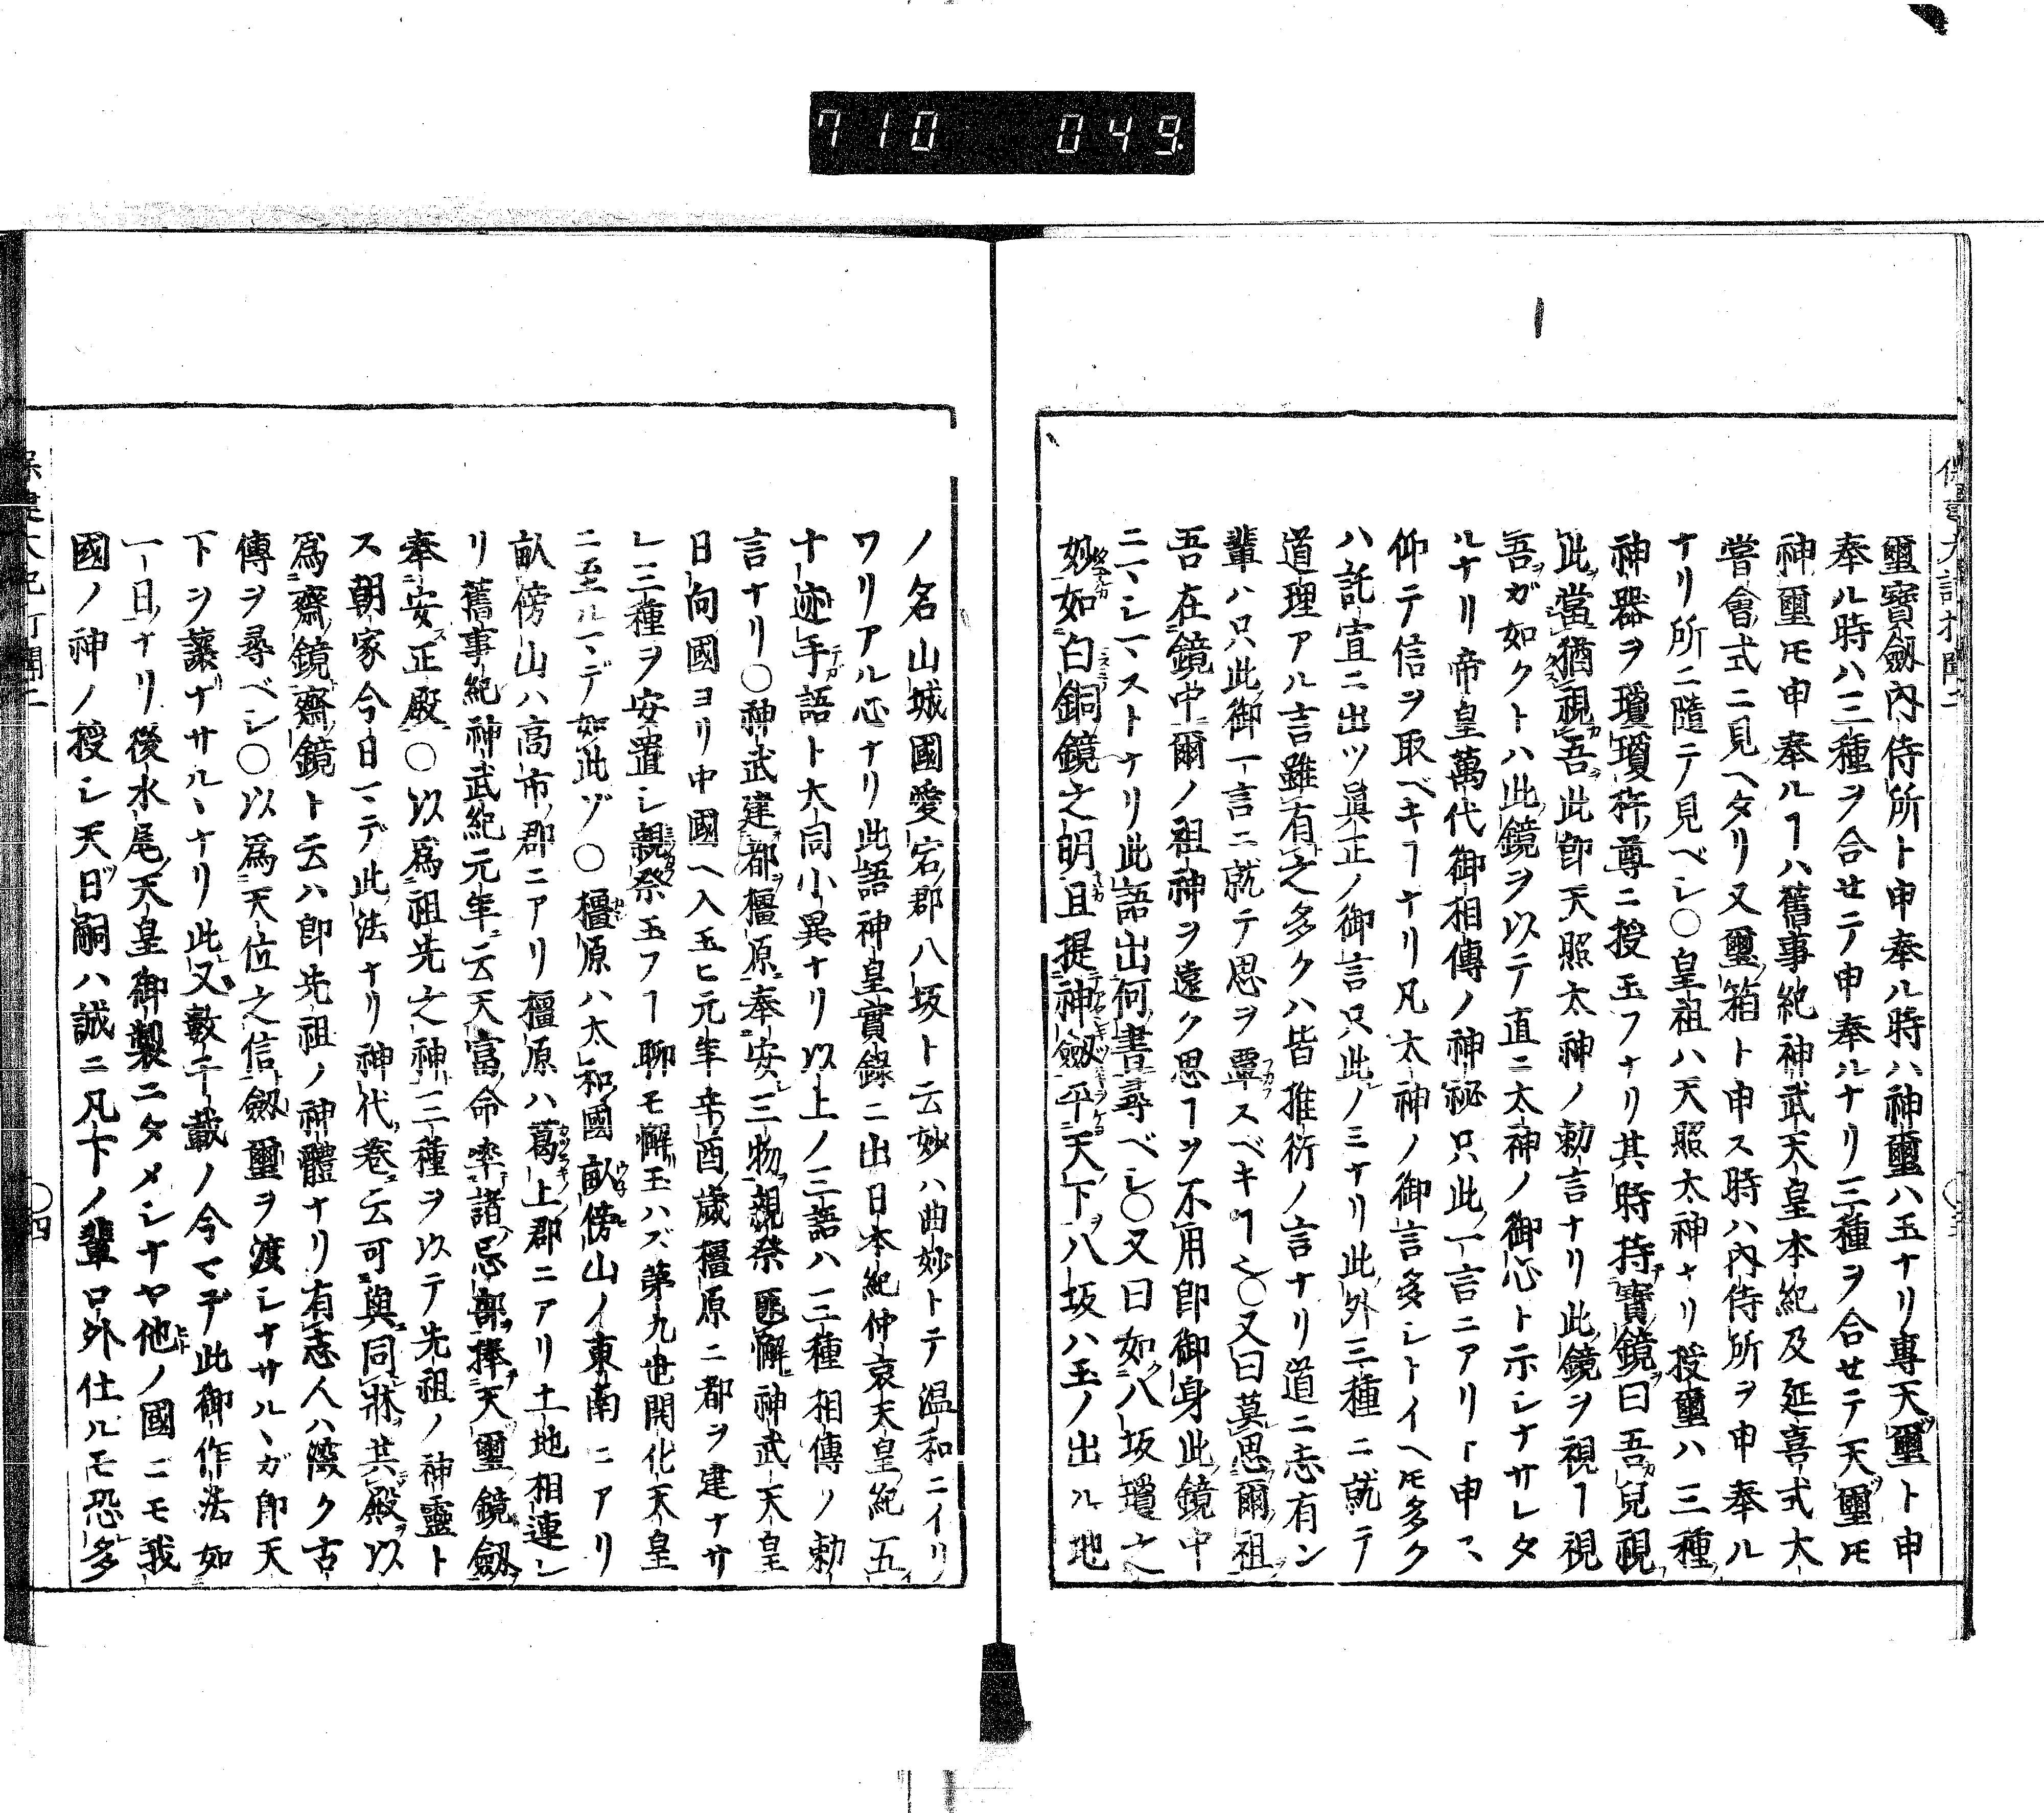 710 049
璽寶劔內侍所ト申奉ル時ハ神璽ハ玉ナリ專天璽ト申
奉ル時ハ三種ヲ合セテ申奉ルナリ三種ヲ合セテ天璽モ
神璽モ申奉ルヿハ舊事紀神武天皇本紀及延喜式大
嘗會式ニ見ヘタリ又璽箱ト申ス時ハ內侍所ヲ申奉ル
ナリ所ニ隨テ見ベシ○皇祖ハ天照太神ナリ授璽ハ三種
神器ヲ瓊瓊杵尊ニ授玉フナリ其時持寶鏡曰吾兒視
此當猶視吾此卽天照太神ノ勅言ナリ此鏡ヲ視ヿ視
吾ガ如クトハ此鏡ヲ以テ直ニ太神ノ御心ト示シナサレタ
ルナリ帝皇萬代御相傳ノ神祕只此一言ニアリト申ヽ
仰テ信ヲ取ベキヿナリ凡太神ノ御言多シトイヘモ多ク
ハ託宣ニ出ツ眞正ノ御言只此ノミナリ此外三種ニ就テ
道理アル言雖有之多クハ皆推衍ノ言ナリ道ニ志有ン
輩ハ只此御一言ニ就テ思ヲ覃スベキヿ也○又曰莫思爾祖
吾在鏡中爾ノ祖神ヲ遠ク思ヿヲ不用卽御身此鏡中
ニヽシマストナリ此語出何書尋ベシ○又曰如八坂瓊之
妙如白銅鏡之明且提神劔平天下八坂ハ玉ノ出ル地
ノ名山城國愛宕郡八坂ト云妙ハ曲妙トテ温和ニイリ
ワリアル心ナリ此語神皇實錄ニ出日本紀仲哀天皇紀五
十迹手語ト大同小異ナリ以上ノ三語ハ三種相傳ノ勅
言ナリ○神武建都橿原奉安三物親祭匪懈神武天皇
日向國ヨリ中國ヘ入玉ヒ元年辛酉歲橿原ニ都ヲ建ナサ
レ三種ヲ安置シ親祭玉フヿ聊モ懈玉ハズ第九世開化天皇
ニ至ルマデ如此ゾ○橿原ハ太和國畝傍山ノ東南ニアリ
畝傍山ハ高市郡ニアリ橿原ハ葛上郡ニアリ土地相連レ
リ舊事紀神武紀元年云天富命率諸忌部捧天璽鏡劔
奉安正殿○以爲祖先之神三種ヲ以テ先祖ノ神靈ト
ス朝家今日マデ此法ナリ神代卷云可與同牀共殿以
爲齋鏡齋鏡ト云ハ卽先祖ノ神體ナリ有志人ハ深ク古
傳ヲ尋ベシ○以爲天位之信劔璽ヲ渡シナサルヽガ卽天
下ヲ讓ナサルヽナリ此又數千載ノ今マデ此御作法如
一日ナリ後水尾天皇御製ニタメシナヤ他ノ國ニモ我
國ノ神ノ授シ天日嗣ハ誠ニ凡下ノ輩口外仕ルモ恐多
○四